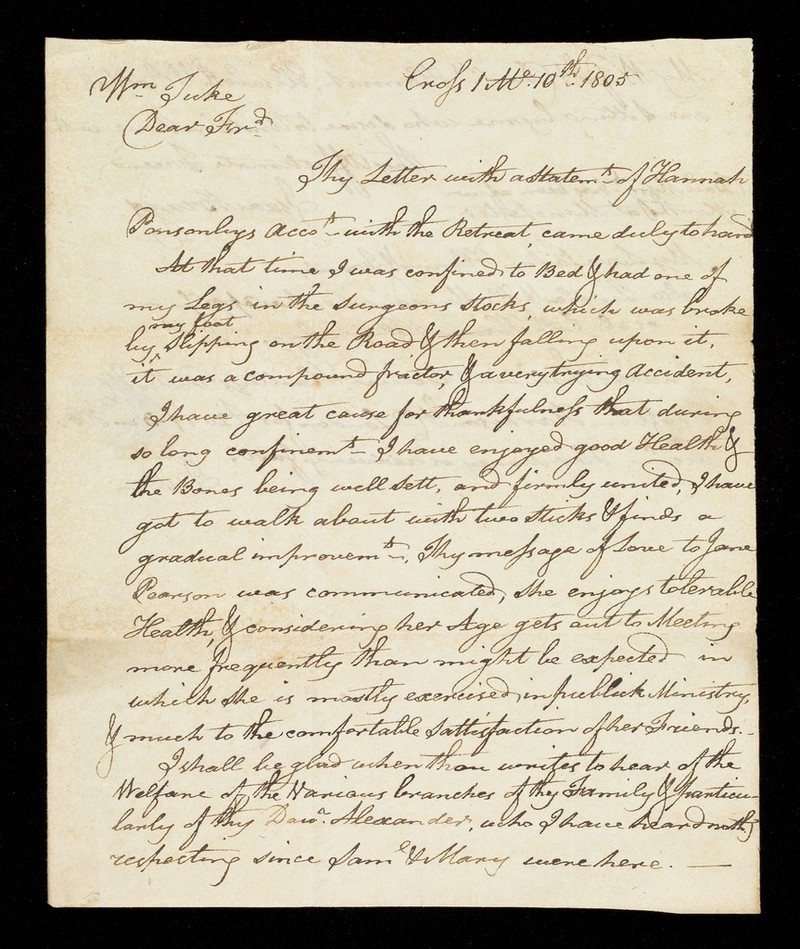 Cross 1 Mo. 10th 1805
Wm Tuke
Dear Frd
Thy Letter with a statemt of Hannah
Ponsonbys Accot with the Retreat, came duly to hand
At that time I was confined to Bed & had one of
my Legs in the Surgeons stocks, which was broke
my foot
by slipping on the Road & then falling upon it,
it was a compound fractor, & a very trying Accident,
I have great cause for thankfulness that during
so long confinemt I have enjoyed good Health &
the Bones being well sett, and firmly united, I have
got to walk about with two sticks & finds a
gradual improvemt. Thy message of Love to Jane
Pearson was communicated, she enjoys tolerable
Health, & considering her Age gets out to Meeting
more frequently than might be expected in
which she is mostly exercised in publick Ministry,
& much to the comfortable satisfaction of her Friends.
I shall be glad when thou writes to hear of the
Welfare of the Various branches of thy Family & particu-
larly of thy Dawr. Alexander, who I have heard nothg
respecting since Saml & Mary were here.